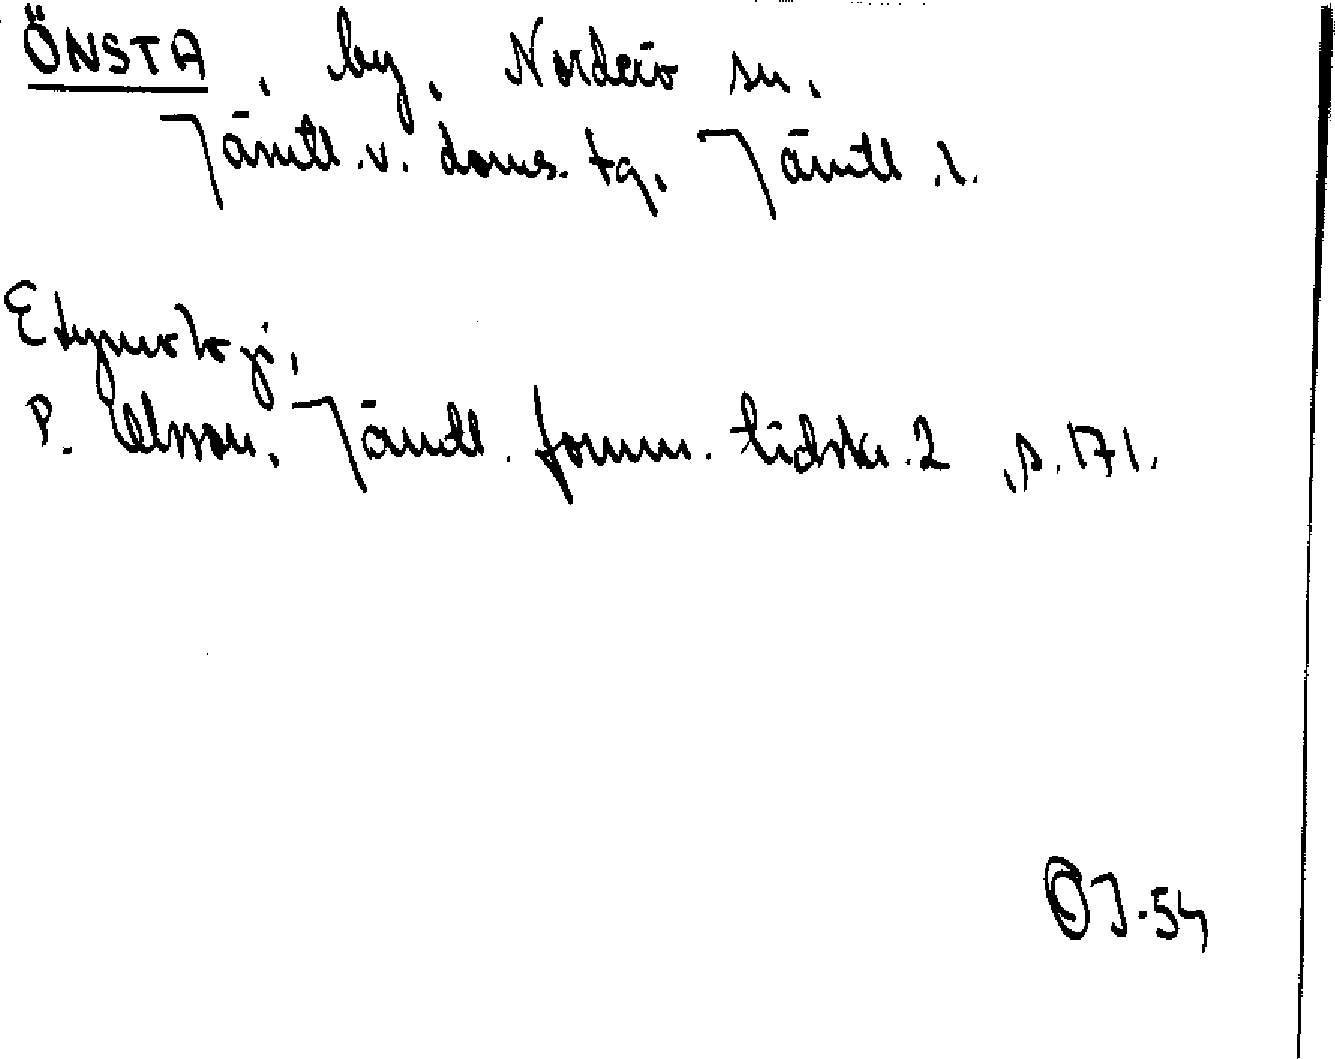 ÖNSTA, by, Norderö sn.
Jämtl. v. doms. tg. Jämtl. l.
Etymologi.
P. Olsson, Jämtl. fornm. tidskr. 2, s. 171.
OJ-54